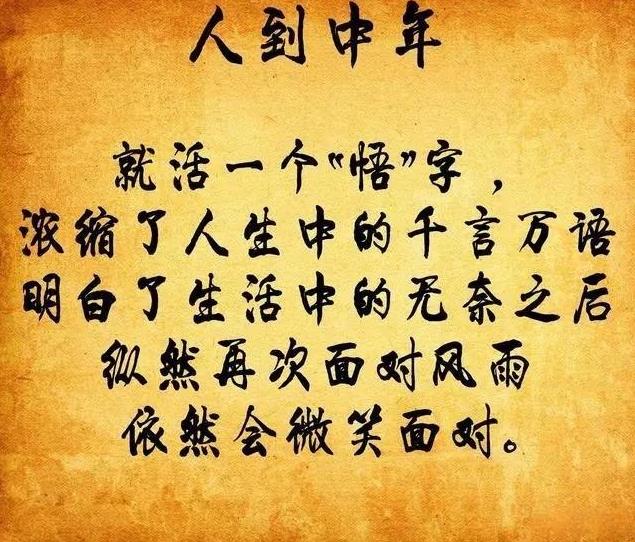 人到中年
就活一个“悟”字，
浓缩了人生中的千言万语
明白了生活中的无奈之后
纵然再次面对风雨
依然会微笑面对。